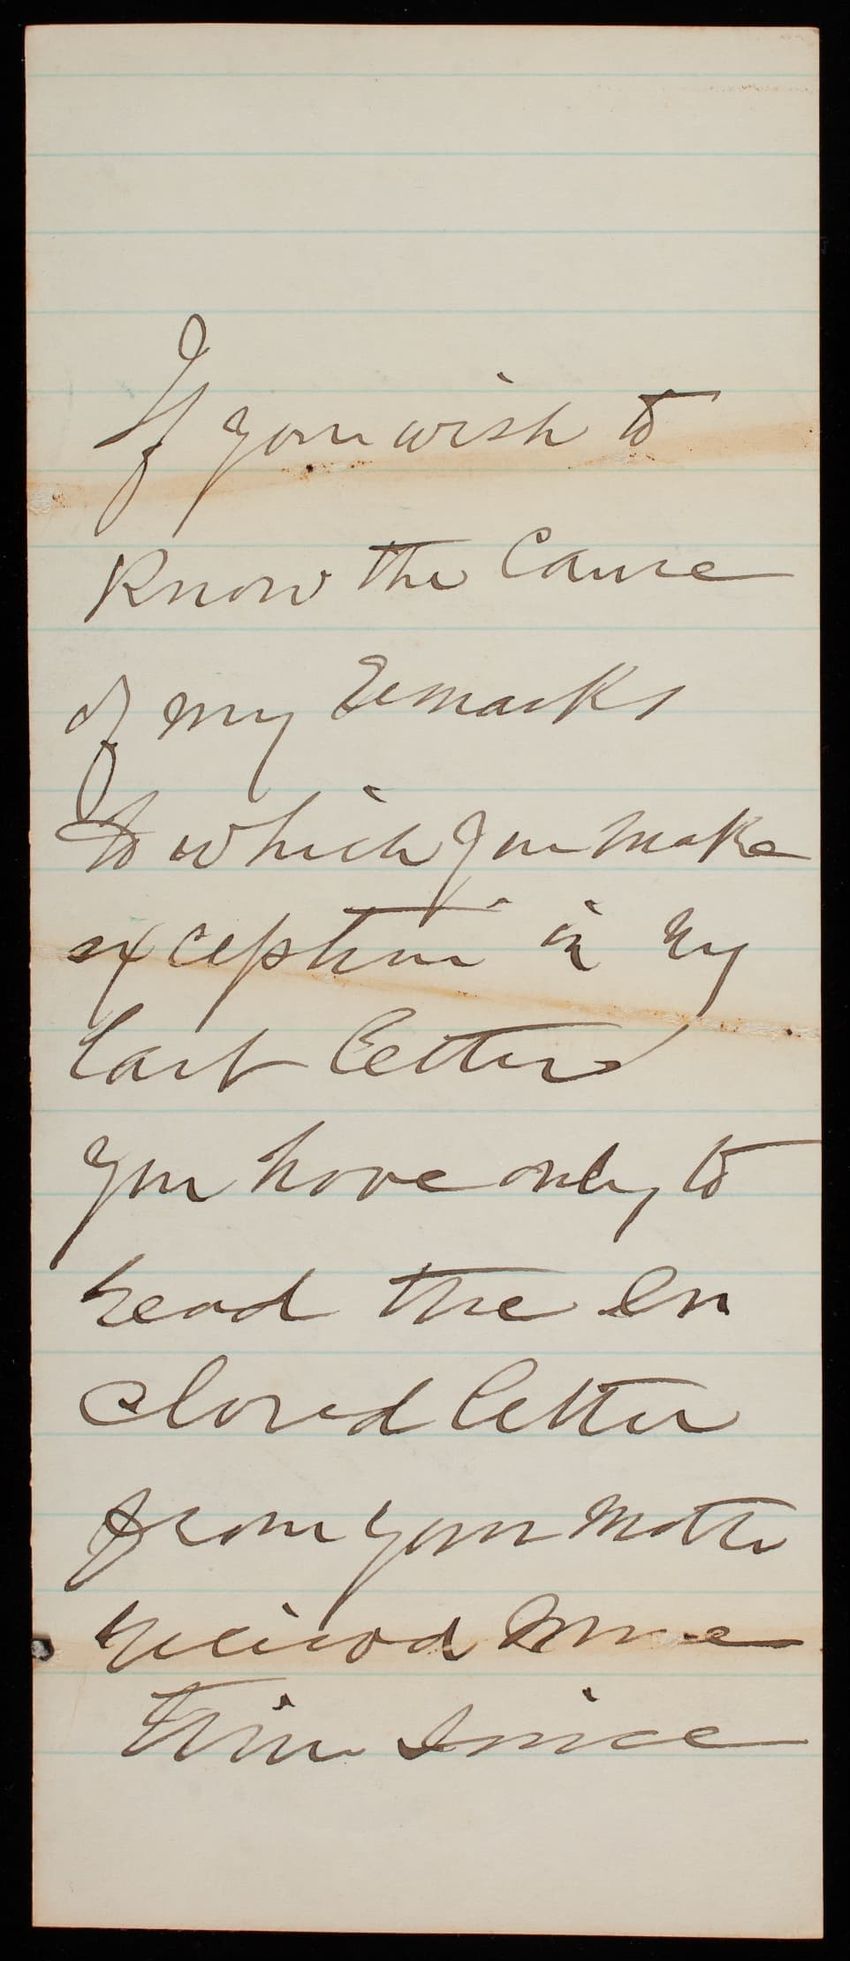 If you wish to
Know the Cause
of my Remarks
to which you make
exception in my
last letter
you have only to
read the en
closed letter
from your mother
received some
time since